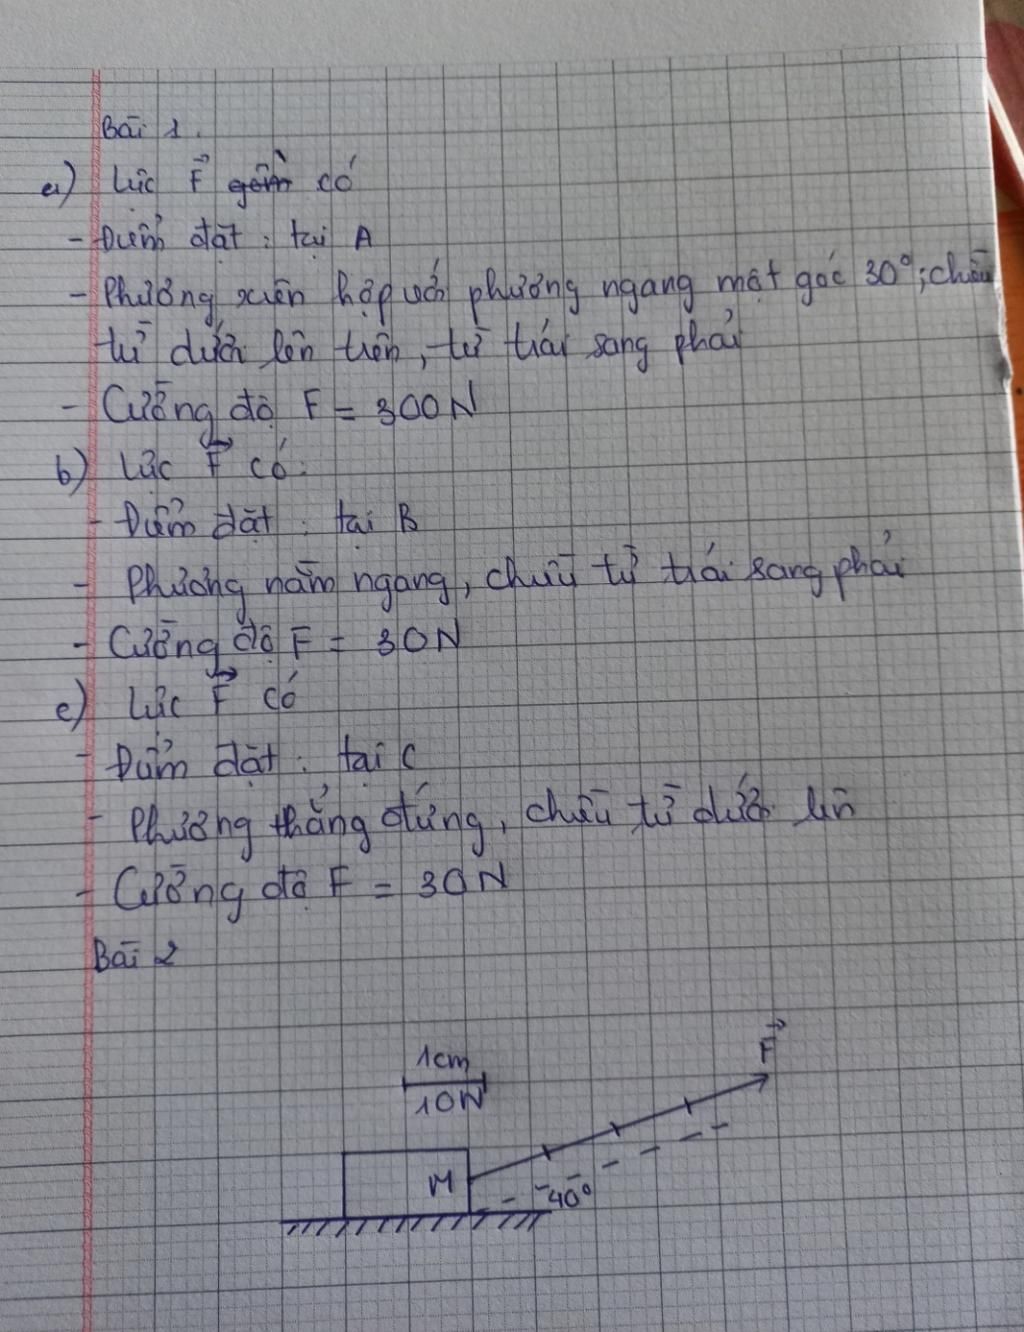 Bài 1.
a) Lực F⃗ gồm có
- Điểm đặt : tại A
- Phương xiên hợp với phương ngang một góc 30°; chiều
từ dưới lên trên, từ trái sang phải
- Cường độ F = 300N
b) Lực F⃗ có :
- Điểm đặt : tại B
- Phương nằm ngang, chiều từ trái sang phải
- Cường độ F = 30N
c) Lực F⃗ có
- Điểm đặt : tại C
- Phương thẳng đứng, chiều từ dưới lên
- Cường độ F = 30N
Bài 2
F⃗
1cm
10N
M
40°